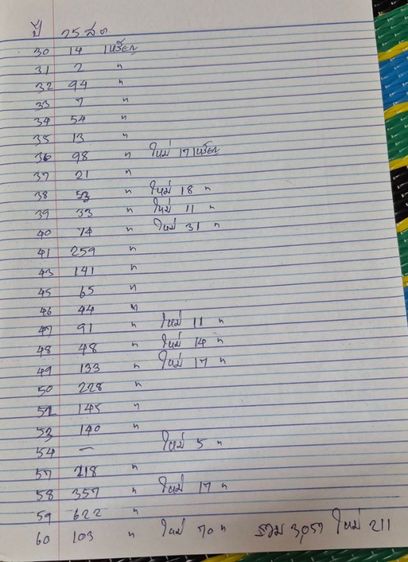 ปี 25 สต
30 14 เหรียญ
31 2 "
32 94 "
33 7 "
34 54 "
35 13 "
36 98 " ใหม่ 17 เหรียญ
37 21 "
38 53 " ใหม่ 18 "
39 33 " ใหม่ 11 "
40 74 " ใหม่ 31 "
41 259 "
43 141 "
45 65 "
46 44 "
47 91 " ใหม่ 11 "
48 48 " ใหม่ 14 "
49 133 " ใหม่ 17 "
50 228 "
51 145 "
53 140 "
54 — ใหม่ 5 "
57 218 "
58 357 " ใหม่ 17 "
59 622 "
60 103 " ใหม่ 70 " รวม 3,057 ใหม่ 211